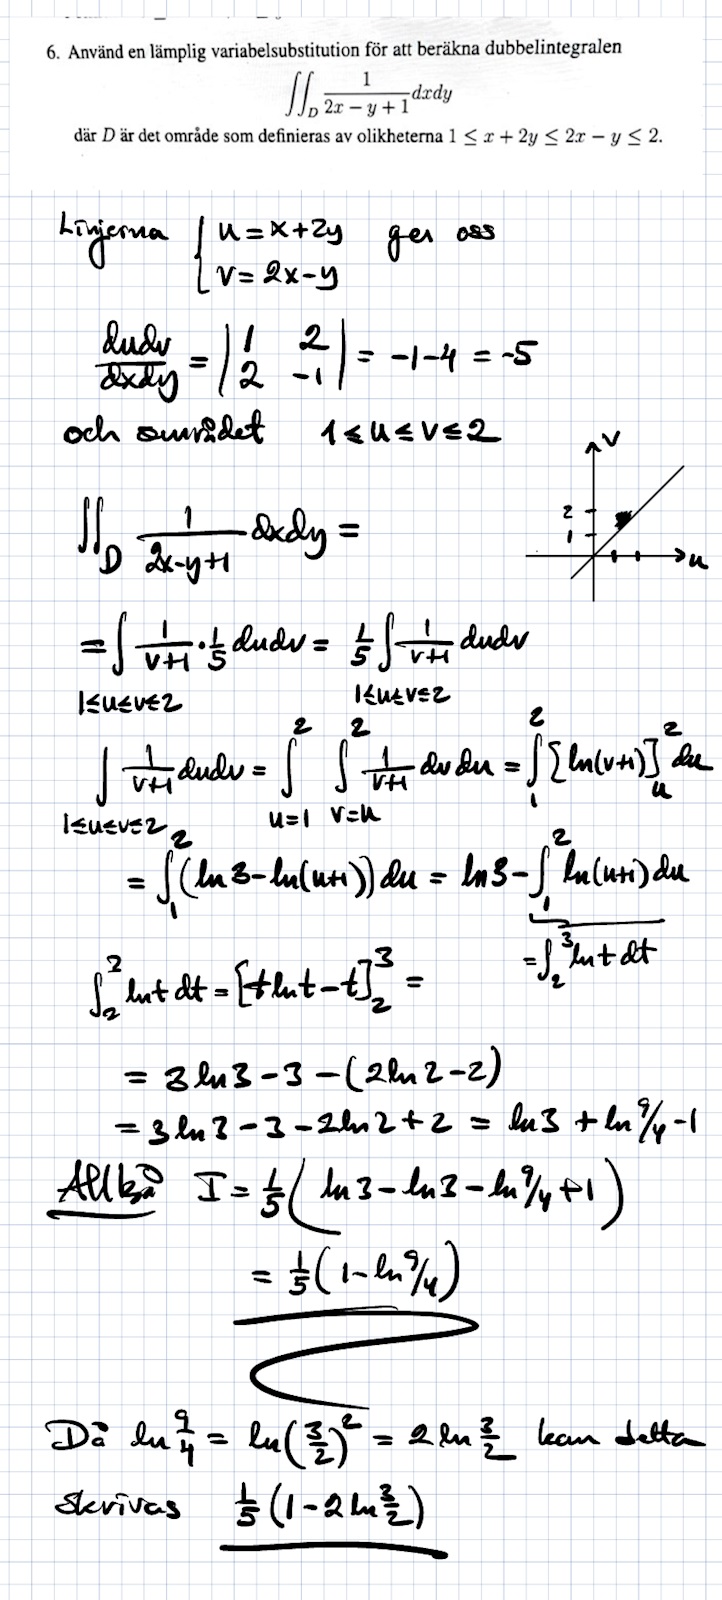 6. Använd en lämplig variabelsubstitution för att beräkna dubbelintegralen
∬_D 1/(2x − y + 1) dxdy
där D är det område som definieras av olikheterna 1 ≤ x + 2y ≤ 2x − y ≤ 2.
Linjerna { u = x+2y ger oss
v = 2x-y
dudv/dxdy = | 1 2 ; 2 -1 | = -1-4 = -5
och området 1≤u≤v≤2
v
2
1
u
∬_D 1/(2x-y+1) dxdy =
= ∫ 1/(v+1) · 1/5 dudv = 1/5 ∫ 1/(v+1) dudv
1≤u≤v≤2 1≤u≤v≤2
∫ 1/(v+1) dudv = ∫_{u=1}^{2} ∫_{v=u}^{2} 1/(v+1) dv du = ∫_1^2 [ln(v+1)]_u^2 du
1≤u≤v≤2
= ∫_1^2 (ln 3 - ln(u+1)) du = ln 3 - ∫_1^2 ln(u+1) du
= ∫_2^3 ln t dt
∫_2^2 ln t dt = [t ln t - t]_2^3 =
= 3 ln 3 - 3 - (2 ln 2 - 2)
= 3 ln 3 - 3 - 2 ln 2 + 2 = ln 3 + ln 9/4 - 1
Alltså I = 1/5 ( ln 3 - ln 3 - ln 9/4 + 1 )
= 1/5 ( 1 - ln 9/4 )
Då ln 9/4 = ln(3/2)^2 = 2 ln 3/2 kan detta
skrivas 1/5 (1 - 2 ln 3/2)